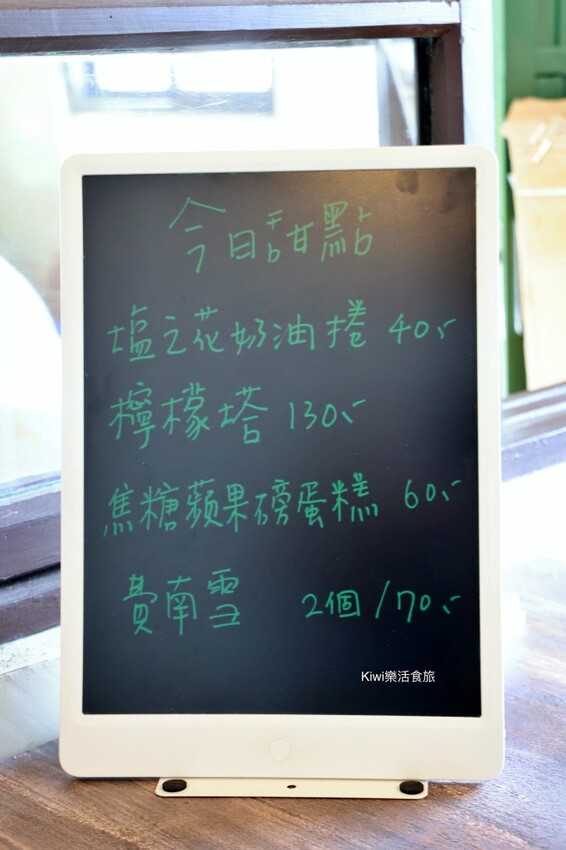 今日甜點
塩之花奶油捲 40.-
檸檬塔 130.-
焦糖蘋果磅蛋糕 60.-
費南雪 2個/70.-
Kiwi樂活食旅